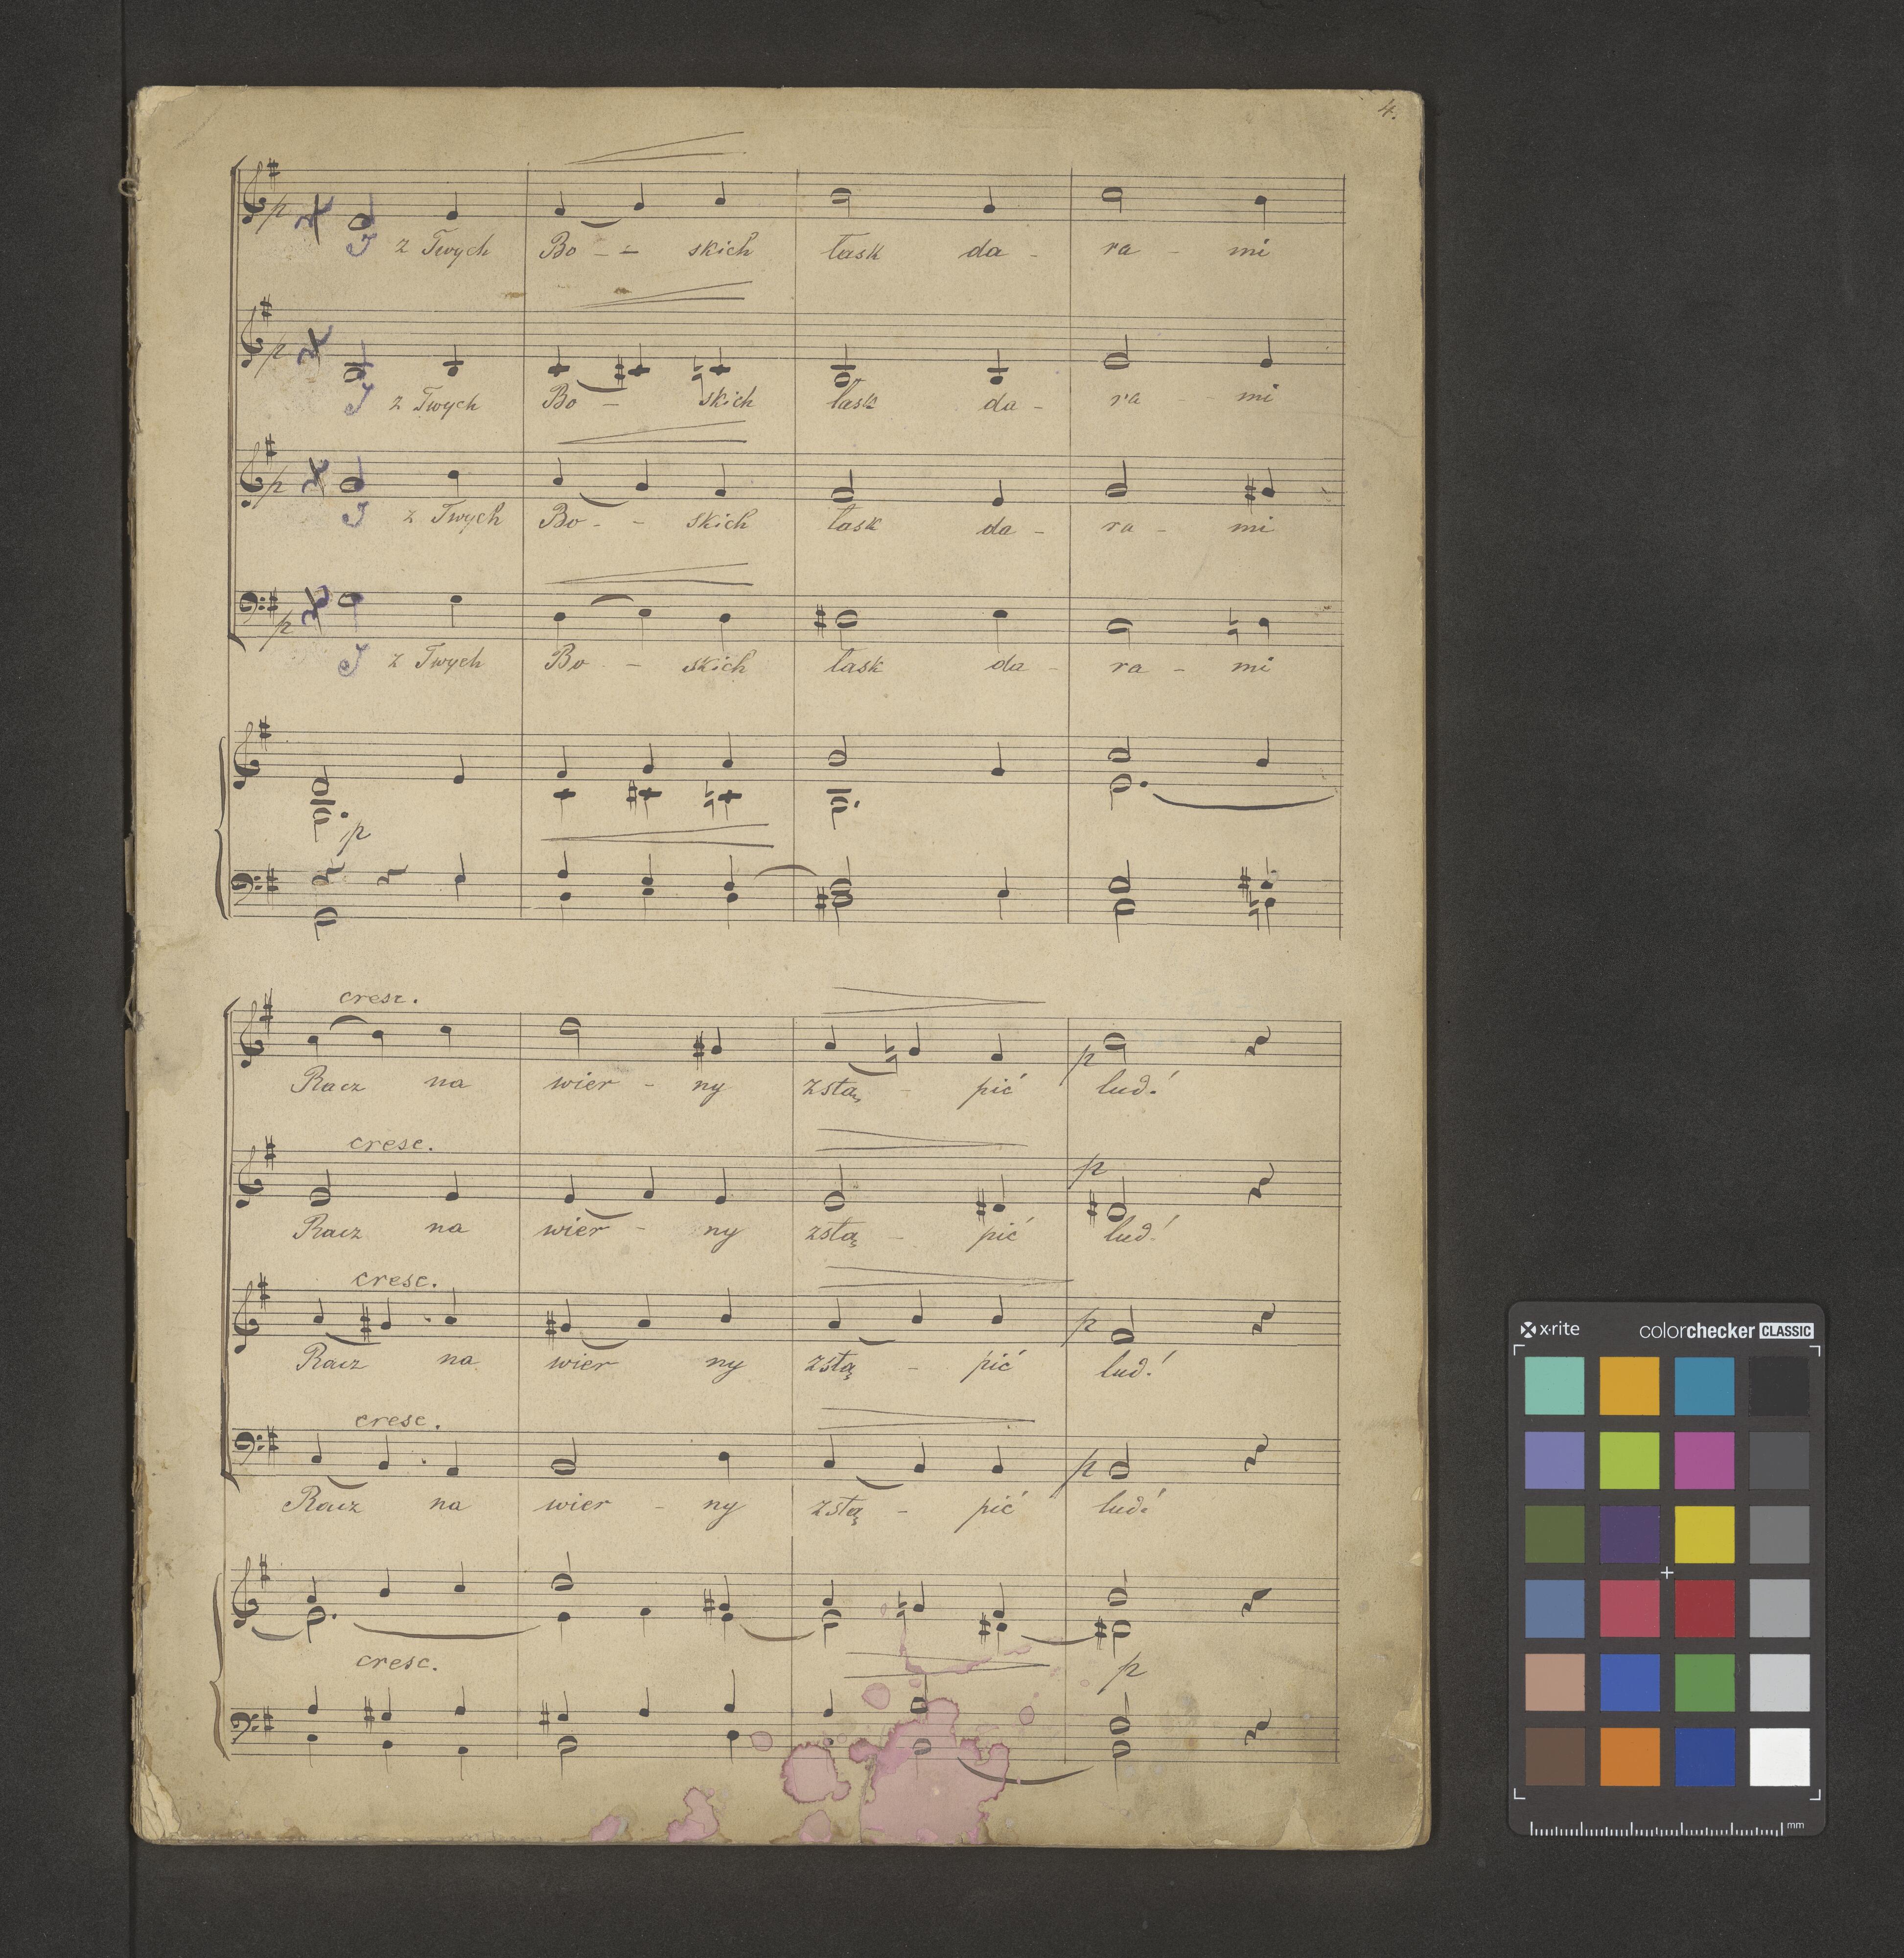 4.
p J z Twych Bo - - skich łask da - ra - mi
p J z Twych Bo - skich łask da - ra - - mi
p J z Twych Bo - - skich łask da - ra - mi
p J z Twych Bo - skich łask da - ra - mi
p
cresc.
p
Racz na wier - ny zstą - pić lud!
cresc.
p
Racz na wier - ny zstą - pić lud!
cresc.
p
Racz na wier ny zstą - pić lud!
cresc.
p
Racz na wier - ny zstą - pić lud!
cresc.
p
x·rite colorchecker CLASSIC
mm